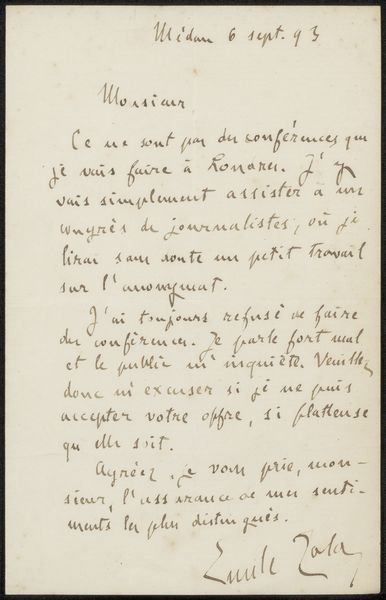 Médan 6 sept. 93
Monsieur
Ce ne sont pas des conférences que
je vais faire à Londres. J'y
vais simplement assister à un
congrès de journalistes, où je
lirai sans doute un petit travail
sur l'anonymat.
J'ai toujours refusé de faire
des conférences. Je parle fort mal
et le public m'inquiète. Veuillez
donc m'excuser si je ne puis
accepter votre offre, si flatteuse
qu'elle soit.
Agréez, je vous prie, mon-
sieur, l'assurance de mes senti-
ments les plus distingués.
Emile Zola